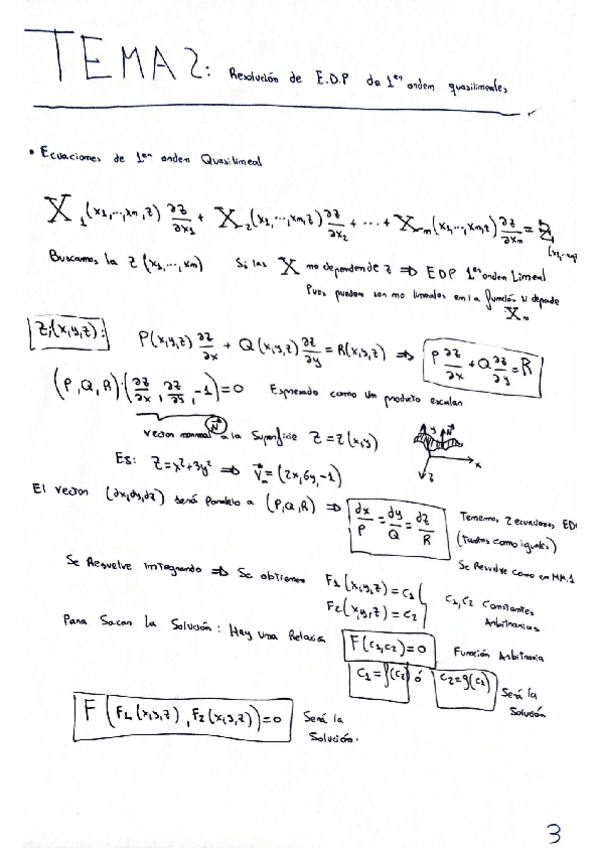 TEMA 2: Resolución de E.D.P de 1er orden quasilineales
• Ecuaciones de 1er orden Quasilineal
X₁(x₁,...,xₙ,z) ∂z/∂x₁ + X₂(x₁,...,xₙ,z) ∂z/∂x₂ + ... + Xₙ(x₁,...,xₙ,z) ∂z/∂xₙ = Z
Buscamos la z(x₁,...,xₙ) Si las X no dependen de z ⇒ EDP 1er orden Lineal
Pues pueden ser no lineales en la función si depende
X.
P(x,y,z) ∂z/∂x + Q(x,y,z) ∂z/∂y = R(x,y,z) ⇒ P ∂z/∂x + Q ∂z/∂y = R
(P,Q,R)·(∂z/∂x, ∂z/∂y, -1) = 0 Expresado como un producto escalar
vector normal N a la Superficie z = z(x,y)
y N x z
Ej: z = x² + 3y² ⇒ Vₙ = (2x, 6y, -1)
El vector (dx,dy,dz) será Paralelo a (P,Q,R) ⇒ dx/P = dy/Q = dz/R Tenemos 2 ecuaciones ED
(todas como iguales)
Se Resuelve como en MM.1
Se Resuelve integrando ⇒ Se obtienen F₁(x,y,z) = c₁
F₂(x,y,z) = c₂ c₁, c₂ Constantes
Arbitrarias
Para Sacar la Solución: Hay una Relación F(c₁,c₂) = 0 Función Arbitraria
c₁ = f(c₂) ó c₂ = g(c₁) Será la
Solución
F(F₁(x,y,z), F₂(x,y,z)) = 0 Será la
Solución.
3